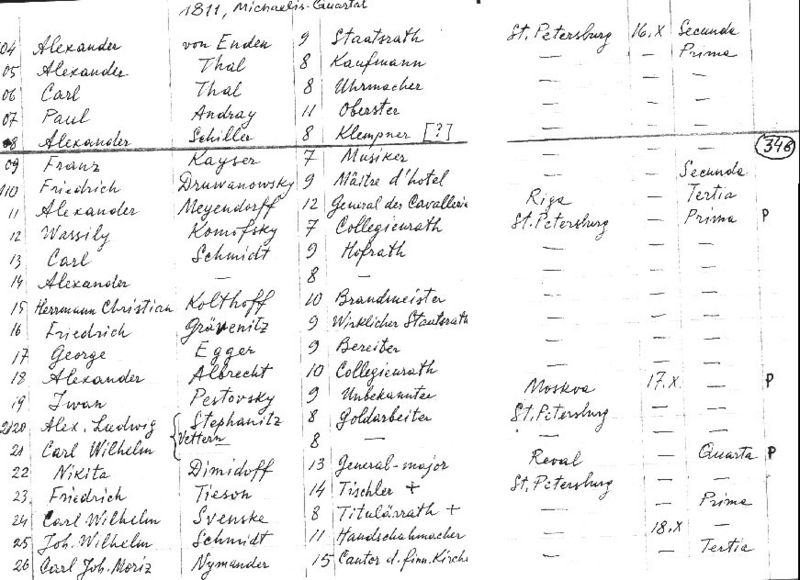 1811, Michaelis-Quartal
04 Alexander von Enden 9 Staatsrath St. Petersburg 16.X Secunda
05 Alexander Thal 8 Kaufmann — — Prima
06 Carl Thal 8 Uhrmacher — — —
07 Paul Andray 11 Oberster — — —
08 Alexander Schiller 8 Klempner [?] — — —
09 Franz Kayser 7 Musiker — — — 348
110 Friedrich Druwanowsky 9 Mâitre d'hotel — — Secunda
11 Alexander Meyendorff 12 General des Cavallerie Riga — Tertia
12 Wassily Komofsky 7 Collegienrath St. Petersburg — Prima P
13 Carl Schmidt 9 Hofrath — — —
14 Alexander — 8 — — — —
15 Herrmann Christian Kolthoff 10 Brandmeister — — —
16 Friedrich Grävenitz 9 Wirklicher Staatsrath — — —
17 George Egger 9 Bereiter — — —
18 Alexander Albrecht 10 Collegienrath — — —
19 Iwan Pestovsky 9 Unbekannter Moskva 17.X. — P
2120 Alex. Ludwig Stephanitz 8 Goldarbeiter St. Petersburg — —
21 Carl Wilhelm Vettern 8 — — — —
22 Nikita Dimidoff 13 General-major Reval — Quarta P
23 Friedrich Tieson 14 Tischler + St. Petersburg — —
24 Carl Wilhelm Svenske 8 Titulärrath + — — Prima
25 Joh. Wilhelm Schmidt 11 Handschuhmacher — 18.X —
26 Carl Joh. Moriz Nymander 15 Cantor d. finn. Kirche — — Tertia